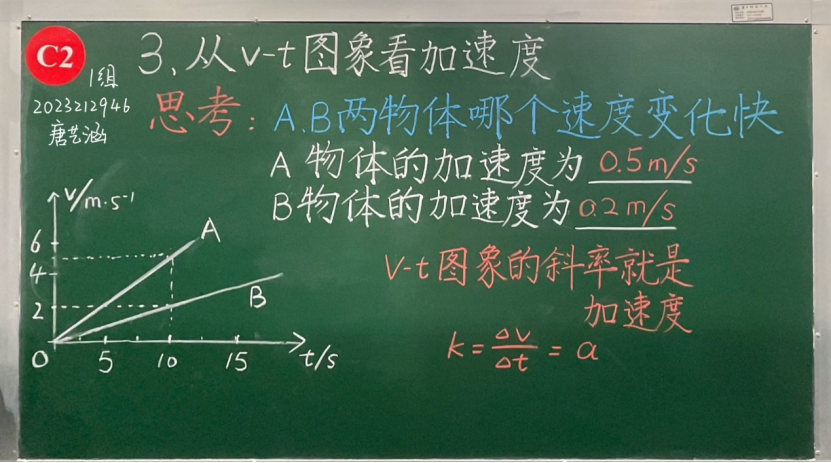 C2
1组
2023212946
唐艺涵
3、从v-t图象看加速度
思考：A.B两物体哪个速度变化快
A物体的加速度为 0.5m/s
B物体的加速度为 0.2m/s
v/m·s⁻¹
A
6
4
B
2
0 5 10 15 t/s
V-t图象的斜率就是
加速度
K=Δv/Δt=a